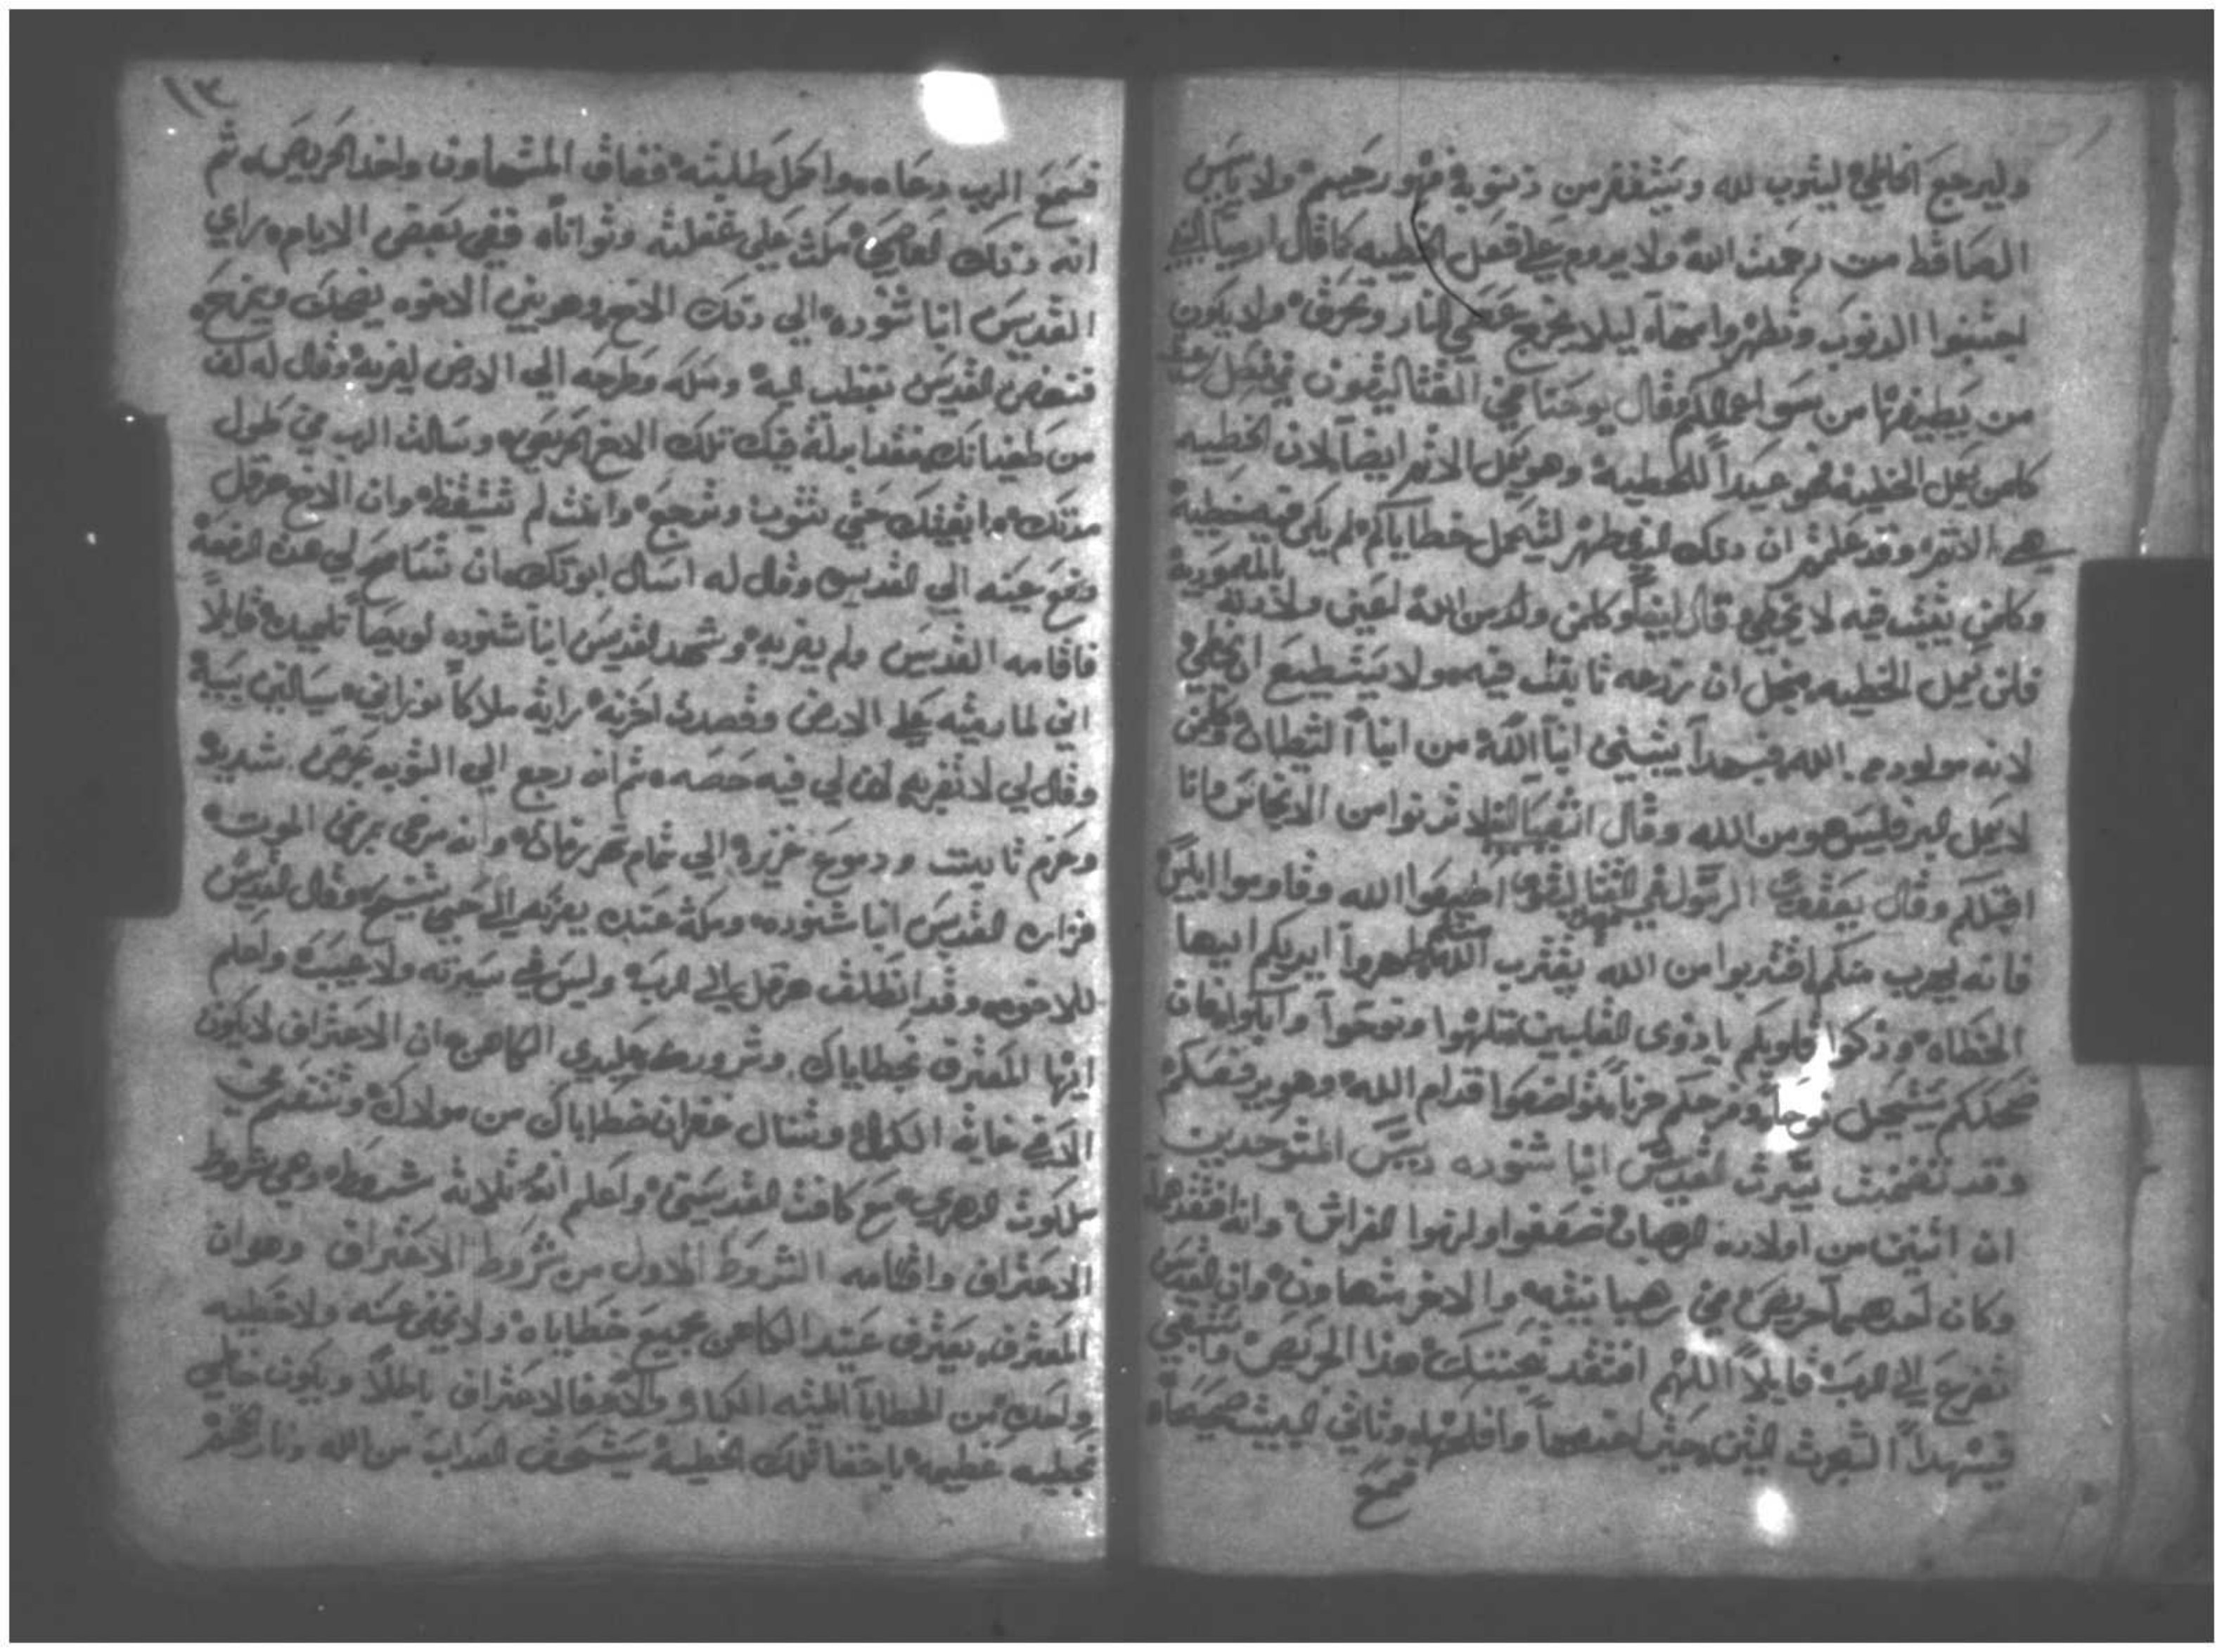 وليرجع الخاطي ليتوب لله ويستغفر من ذنوبه فهو رحيم ولا ياس
الساقط من رحمت الله ولا يدوم علي فعل الخطيه كما قال ارميا النبي
اجتنبوا الدنوب وتطهروا منها ليلا يخرج غضبي النار وتحرق ولا يكون
من يطيفها من سو اعمالكم وقال يوحنا في القتاليقون في فصل
كلمن يعمل الخطية فهو عبداً للخطية وهو يعمل الاثم ايضاً لان الخطيه
هي الاثم وقد علمتم ان دلك الذي ظهر ليحمل خطاياكم ولم يكن فيه خطية
وكلمن يثبت فيه لا يخطي قال ايضاً وكلمن ولد من الله اعني ولادته بالمعمودية
فلن يعمل الخطيه من اجل ان زرعه ثابت فيه ولا يستطيع ان يخطي
لانه مولود من الله فبهدا يتبين ابنا الله من ابنا الشيطان وكلمن
لا يعمل البر فليس هو من الله وقال اشعيا النبي لا تدنوا من الانجاس وانا
اقبلكم وقال يعقوب الرسول في القتاليقون اطيعوا الله وقاوموا ابليس
فانه يهرب منكم اقتربوا من الله يقترب الله منكم طهروا ايديكم ايها
الخطاه وزكوا قلوبكم يا ذوي القلبين وتنوحوا وابكوا فان
ضحككم يستحيل نوحاً وفرحكم حزناً تواضعوا قدام الله وهو يرفعكم
وقد تضمنت سيرت القديس انبا شنوده ريس المتوحدين
ان اتنين من اولاده الرهبان ضعفوا ولزموا الفراش وانه افتقدهما
وكان احدهما حريص في رهبانيته والاخر متهاون وان القديس
تضرع الي الرب قايلاً اللهم افتقد هذا الحريص
فيهدا الميت احدهما وتاني
فسمع
١٣
فسمع الرب دعاه واكمل طلبته ففاق المتهاون واخد الحريص ثم
انه دلك العاصي مكث علي غفلته وتوانا ففي بعض الايام راي
القديس انبا شنوده الي دلك الاخ وهو بين الاخوه يضحك ويمزح
فنهض القديس بغضب اليه ومسكه وطرحه الي الارض ليضربه وقال له كف
من طغيانك فقد بدلة فيك تلك الاخ الحريص وسالت الرب في طول
مدتك وابقيتك حتي تتوب وترجع وانت لم تستيقظ وان الاخ هرقل
رفع عينه الي القديس وقال له اسال ابوتك ان تسامح لي هذه الدفعة
فاقامه القديس ولم يضربه وشهد القديس انبا شنوده لويصا تلميده قايلاً
اني لما رميته علي الارض وقصدت اضربه رايت ملاكاً نوراني يسالني بسببه
وقال لي لا تضربه لان لي فيه حصه ثم انه رجع الي التوبه بحرص شديد
وحزم تابت ودموع غزيره الي تمام زمانه وانه مرض مرض الموت
فزاره القديس انبا شنوده ومكث عنده يعزيه الي حين تنيح وقال القديس
للاخوه وقد انطلق هرقل الي الرب وليس في سيرته ولا عيب واعلم
ايها المعترف بخطاياك وشرورك بين يدي الكاهن ان الاعتراف لا يكون
الا في غاية الكمال وتسال غفران خطاياك من مولاك وتنعم في
ملكوت الدهري مع كافت القديسين واعلم انه تلاته شروط وهي شروط
الاعتراف واقسامه الشروط الاول من شروط الاعتراف وهو ان
المعترف يعترف عند الكاهن بجميع خطاياه ولا يخفي عنه ولا خطيه
واحده من الخطايا المميته الكبار والا فالاعتراف باطلاً ويكون خاطي
بخطيه عظيمه باخفا تلك الخطية يستحق العداب من الله ونار جهنم